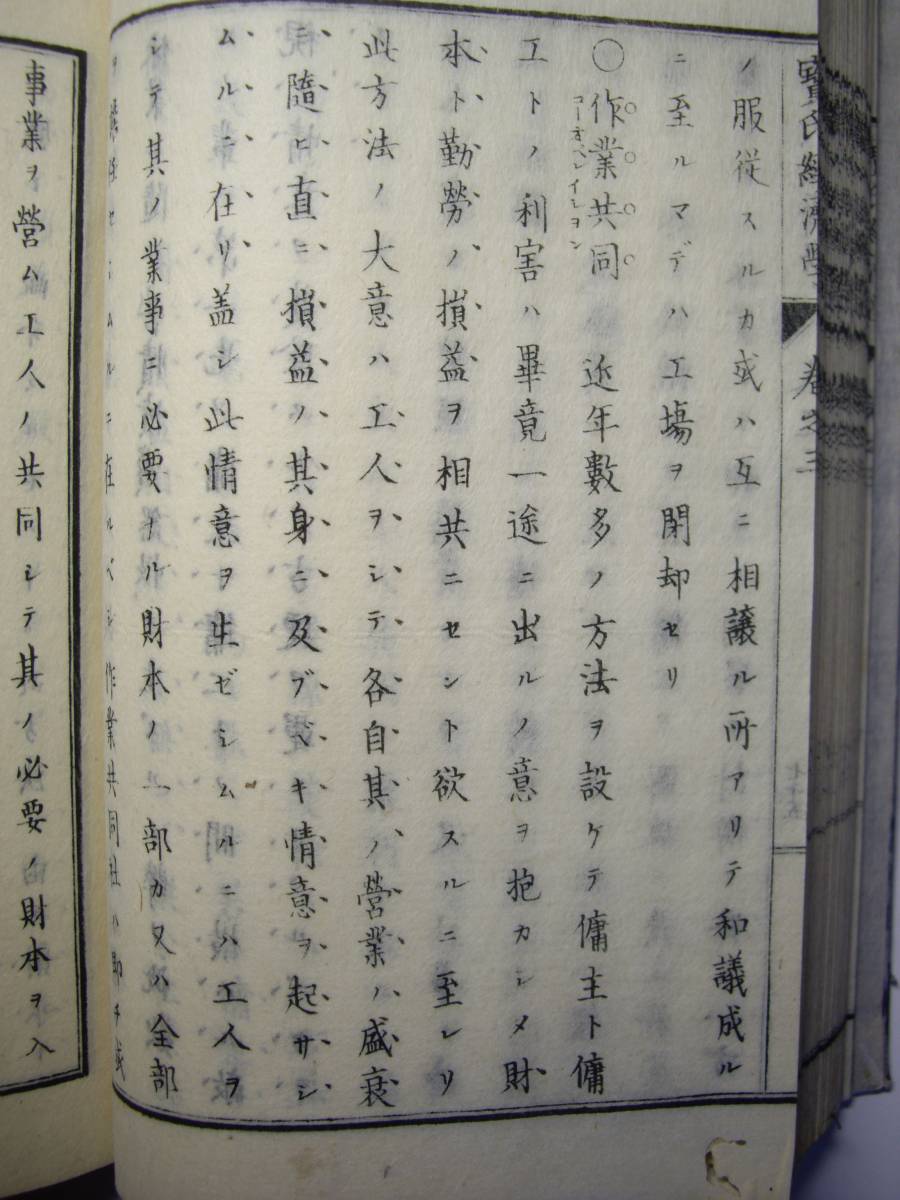 寳氏經濟學 卷之三
七十五
ノ服従スルカ或ハ互ニ相譲ル所アリテ和議成ル
ニ至ルマデハ工場ヲ閉却セリ
〇作業共同 近年數多ノ方法ヲ設ケテ傭主ト傭
コーオペレイション
工トノ利害ハ畢竟一途ニ出ルノ意ヲ抱カシメ財
本ト勤勞ノ損益ヲ相共ニセント欲スルニ至レリ
此方法ノ大意ハ工人ヲシテ各自其ノ營業ノ盛衰
ニ隨ヒ直ニ損益ノ其身ニ及ブベキ情意ヲ起サシ
ムルニ在リ盖シ此情意ヲ生ゼシムルニハ工人ヲ
シテ其ノ業事ニ必要ナル財本ノ一部カ又ハ全部
セシムルニ在ルベシ作業共同社ハ即チ或
事業ヲ營ム工人ノ共同シテ其ノ必要ノ財本ヲ入